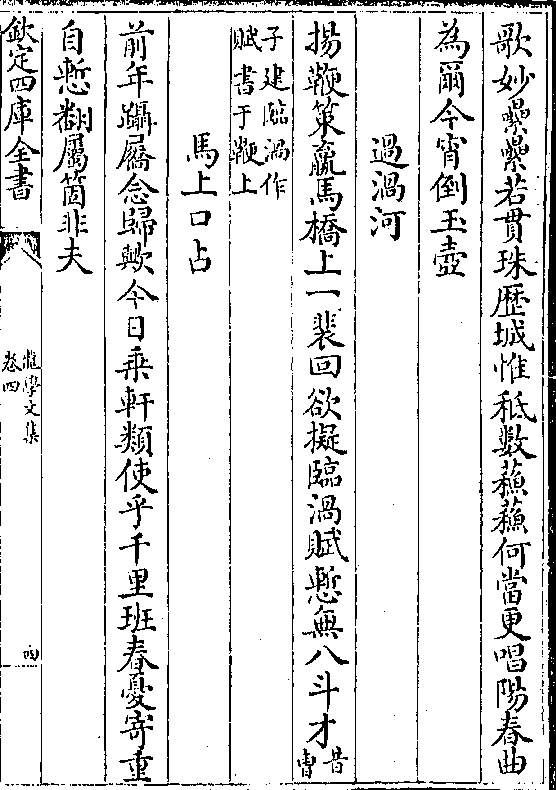 歌妙纍纍若貫珠歴城惟秪数蘓蘓何當更唱陽春曲
為爾今宵倒玉壺
過渦河
揚鞭策羸馬橋上一裴回欲擬臨渦賦慙無八斗才昔曹
子建臨渦作
賦書于鞭上
馬上口占
前年躡屩念歸歟今日乗軒類使乎千里班春憂寄重
自慙翻屬箇非夫
欽定四庫全書
龍學文集
卷四
四